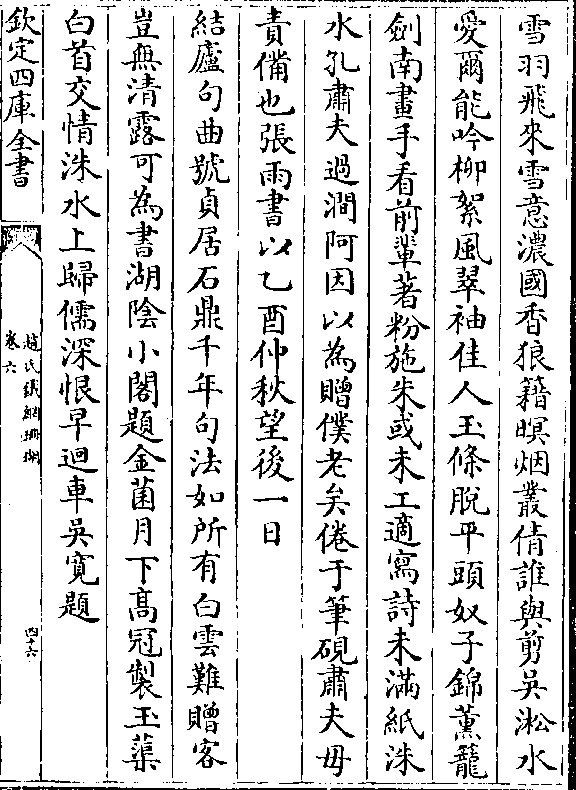 雪羽飛來雪意濃國香狼籍暝烟叢倩誰與剪吳淞水
愛爾能吟柳絮風翠袖佳人玉條脫平頭奴子錦薰籠
劍南畫手看前輩著粉施朱或未工適寫詩未滿紙洙
水孔肅夫過澗阿因以為贈僕老矣倦于筆硯肅夫毋
責備也張雨書以乙酉仲秋望後一日
結廬句曲號貞居石鼎千年句法如所有白雲難贈客
豈無清露可為書湖陰小閣題金菌月下高冠製玉蕖
白首交情洙水上歸儒深恨早迴車吳寛題
欽定四庫全書
趙氏鐵網珊瑚
卷六
四十六